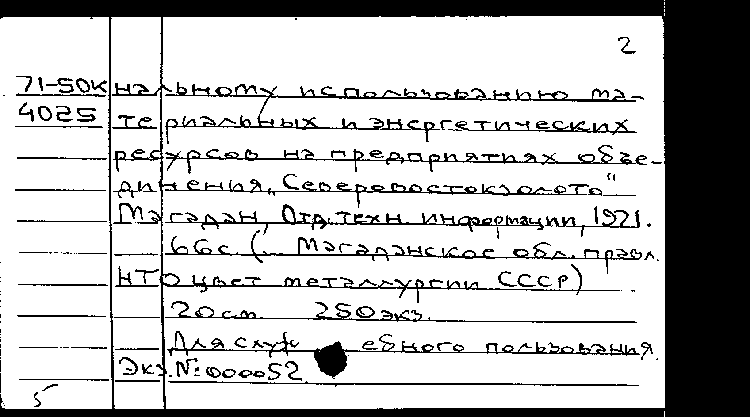 2
71-50к нальному использованию ма-
4025 териальных и энергетических
ресурсов на предприятиях объе-
динения „Северовостокзолото"
Магадан, Отд. техн. информации, 1971.
66с. (... Магаданское обл. правл.
НТО цвет металлургии СССР)
20 см. 250 экз.
Для служ ебного пользования.
Экз. №000052
5